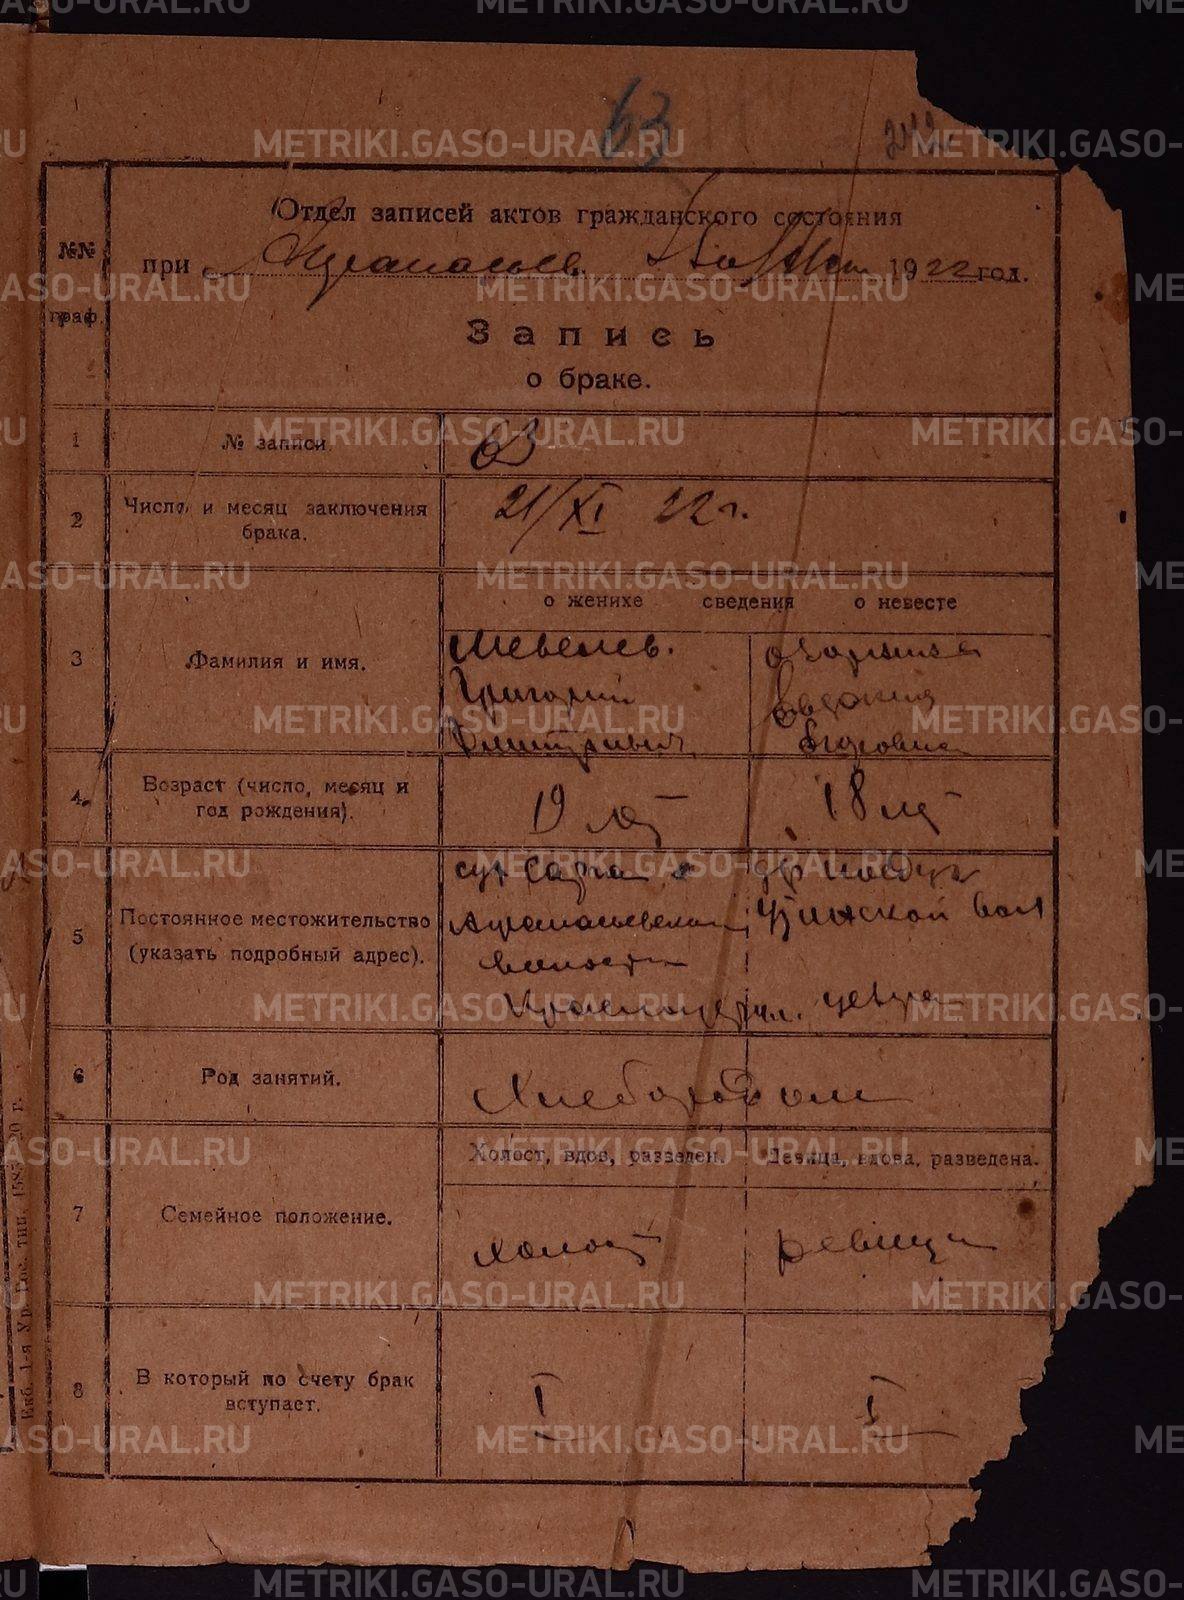 63
242
Отдел записей актов гражданского состояния
№№ граф.
при 1922 год.
Запись
о браке.
1 № записи 63
2 Число и месяц заключения брака. 21/XI 22 г.
о женихе сведения о невесте
3 Фамилия и имя.
Шевелев.
Григорий
Дмитриевич
Евдокия
Егоровна
4. Возраст (число, месяц и год рождения).
19 лет
18 лет
5 Постоянное местожительство (указать подробный адрес).
Афанасьевской
волости
Красноуфим. уезда
6 Род занятий. Хлебороботом
7 Семейное положение.
Холост, вдов, разведен. Девица, вдова, разведена.
холост
девица
8 В который по счету брак вступает.
I
I
Екб. 1-я Ур. Гос. тип. 1585-20 г.
METRIKI.GASO-URAL.RU